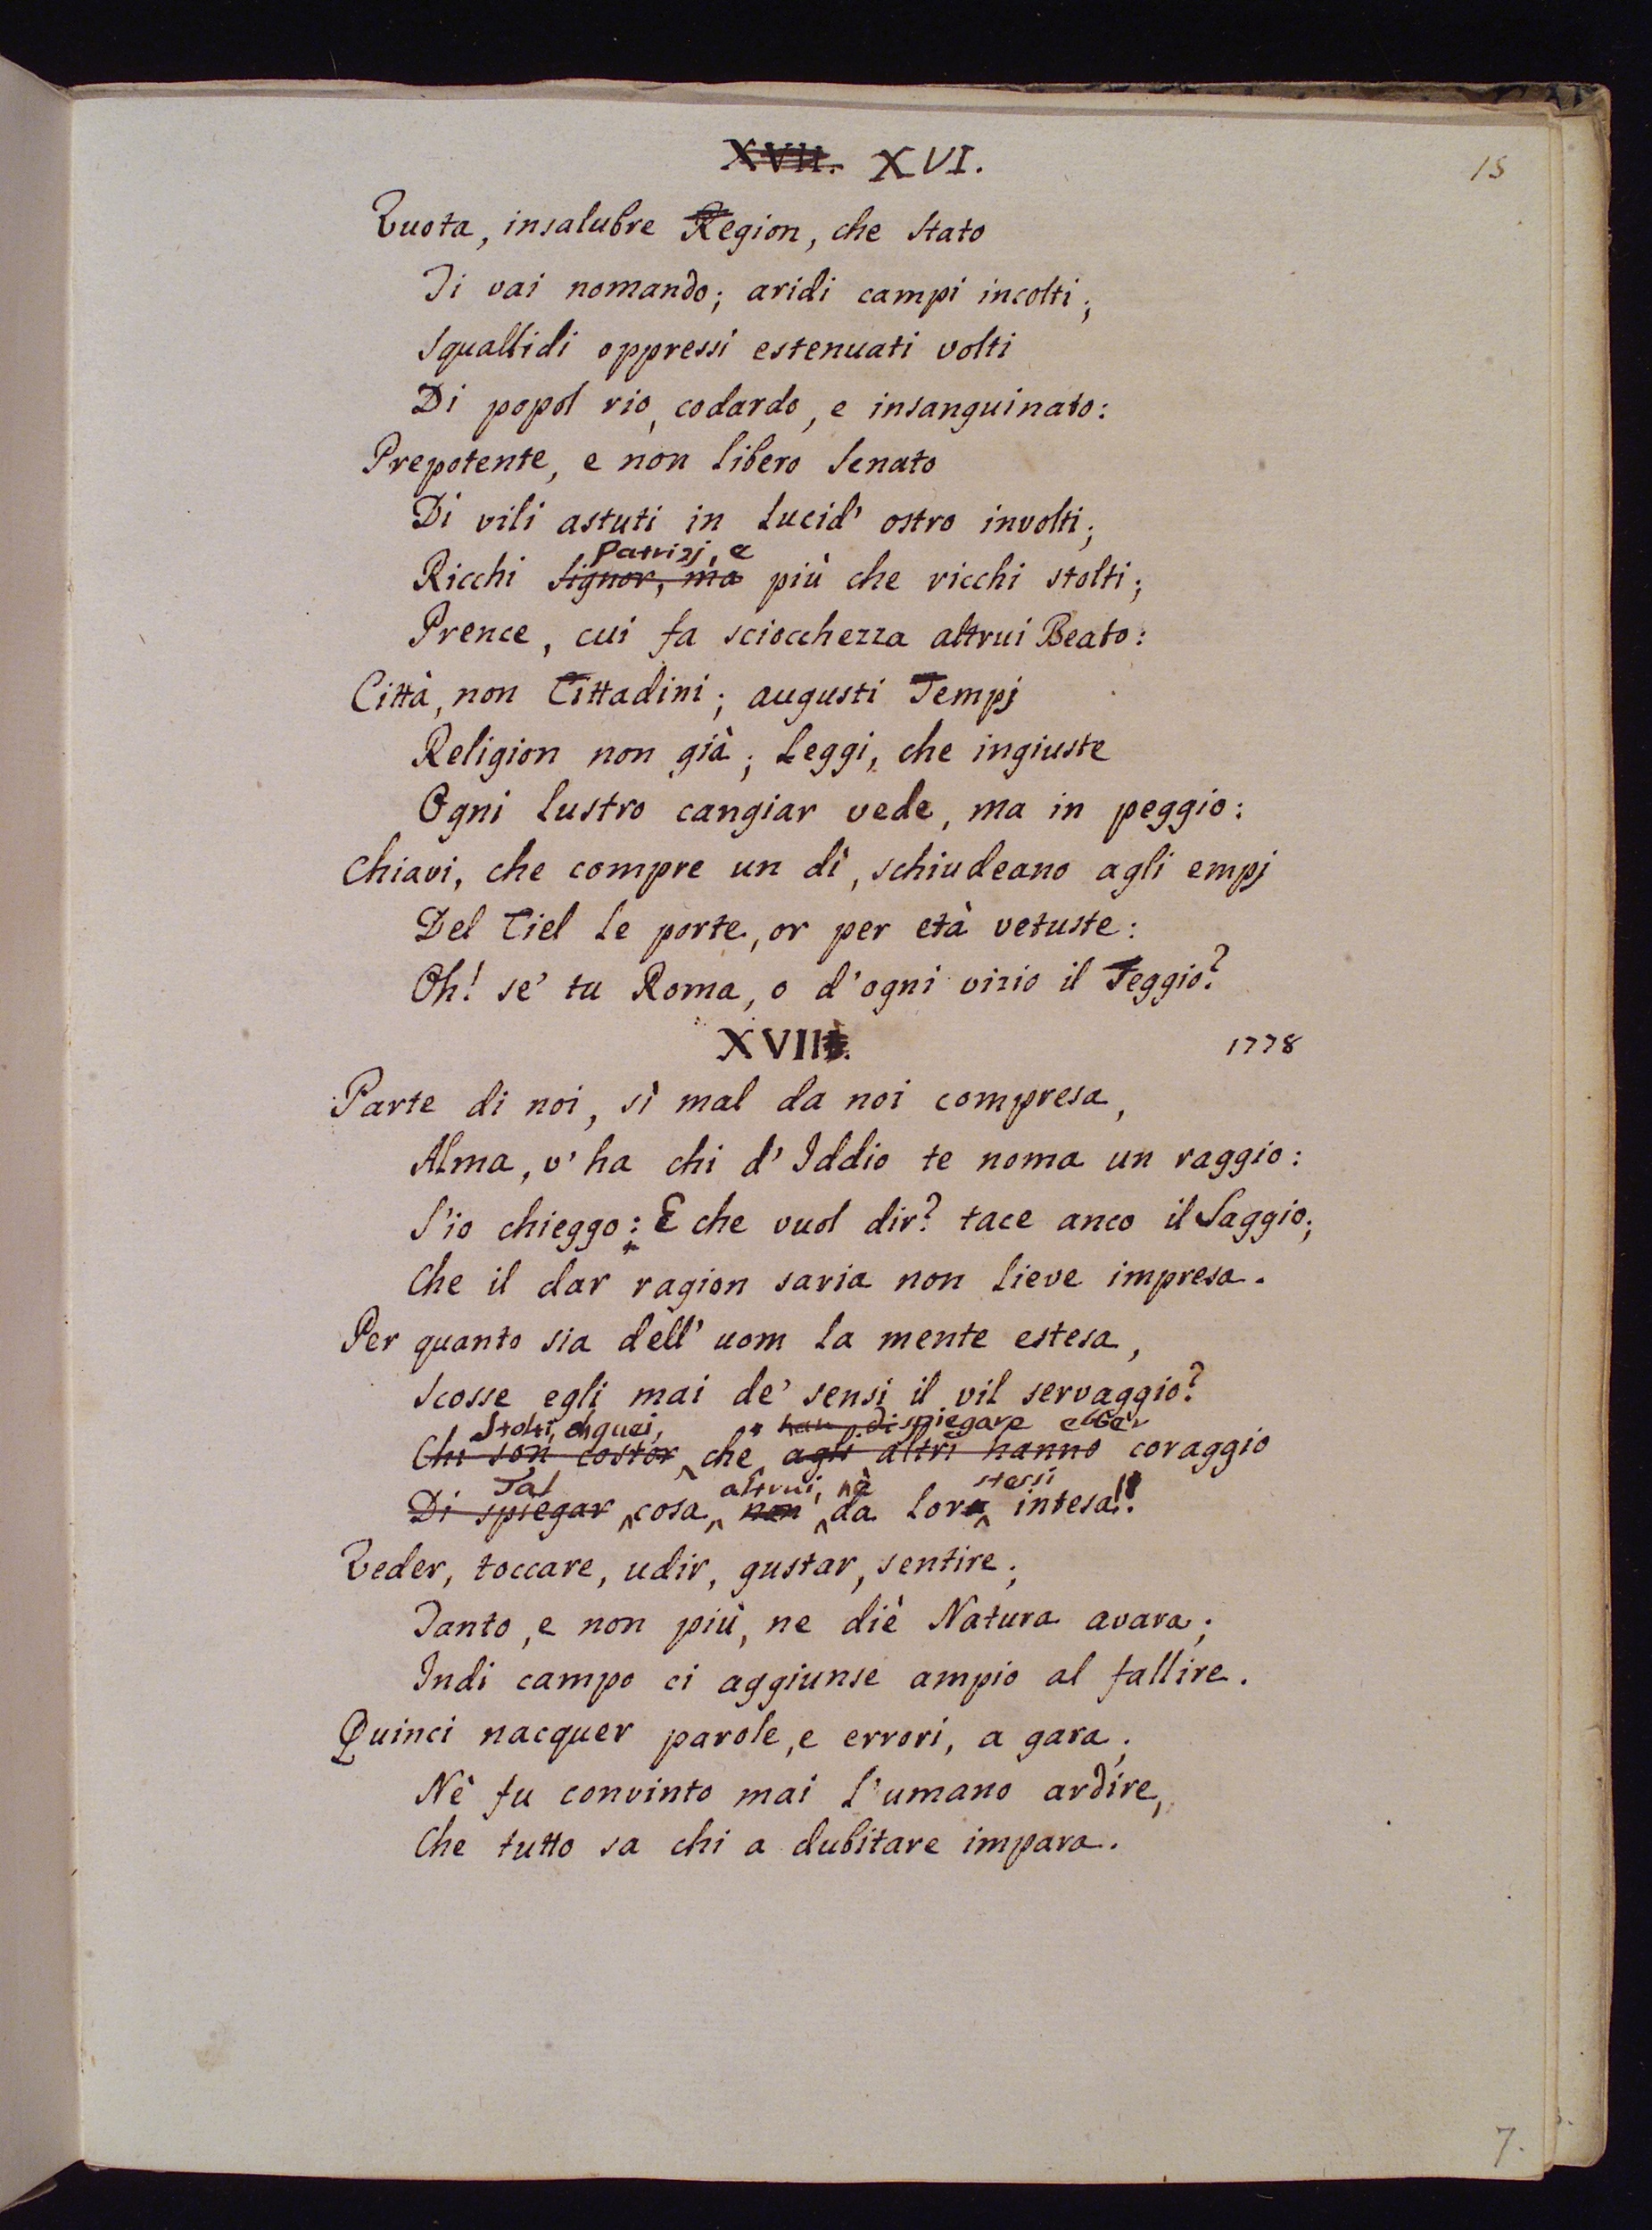 XVII. XVI.
15
Vuota, insalubre Region, che Stato
Ti vai nomando; aridi campi incolti;
Squallidi oppressi estenuati volti
Di popol rio, codardo, e insanguinato:
Prepotente, e non libero Senato
Di vili astuti in lucid' ostro involti;
Patrizj, e
Ricchi Signor, ma più che ricchi stolti;
Prence, cui fa sciocchezza altrui Beato:
Città, non Cittadini; augusti Tempj
Religion non già; Leggi, che ingiuste
Ogni lustro cangiar vede, ma in peggio:
Chiavi, che compre un dì, schiudeano agli empj
Del Ciel le porte, or per età vetuste:
Oh! se' tu Roma, o d'ogni vizio il Seggio?
XVII.
1778
Parte di noi, sì mal da noi compresa,
Alma, v'ha chi d'Iddio te noma un raggio:
S'io chieggo: E che vuol dir? tace anco il Saggio;
Che il dar ragion saria non lieve impresa.
Per quanto sia dell' uom la mente estesa,
Scosse egli mai de' sensi il vil servaggio?
Stolti, che quei, di spiegare ebber
Chi son costor che agli altri hanno coraggio
Tal altrui, nè stessi
Di spiegar cosa non da loro intesa!!
Veder, toccare, udir, gustar, sentire;
Tanto, e non più, ne diè Natura avara;
Indi campo ci aggiunse ampio al fallire.
Quinci nacquer parole, e errori, a gara;
Nè fu convinto mai l'umano ardire,
Che tutto sa chi a dubitare impara.
7.